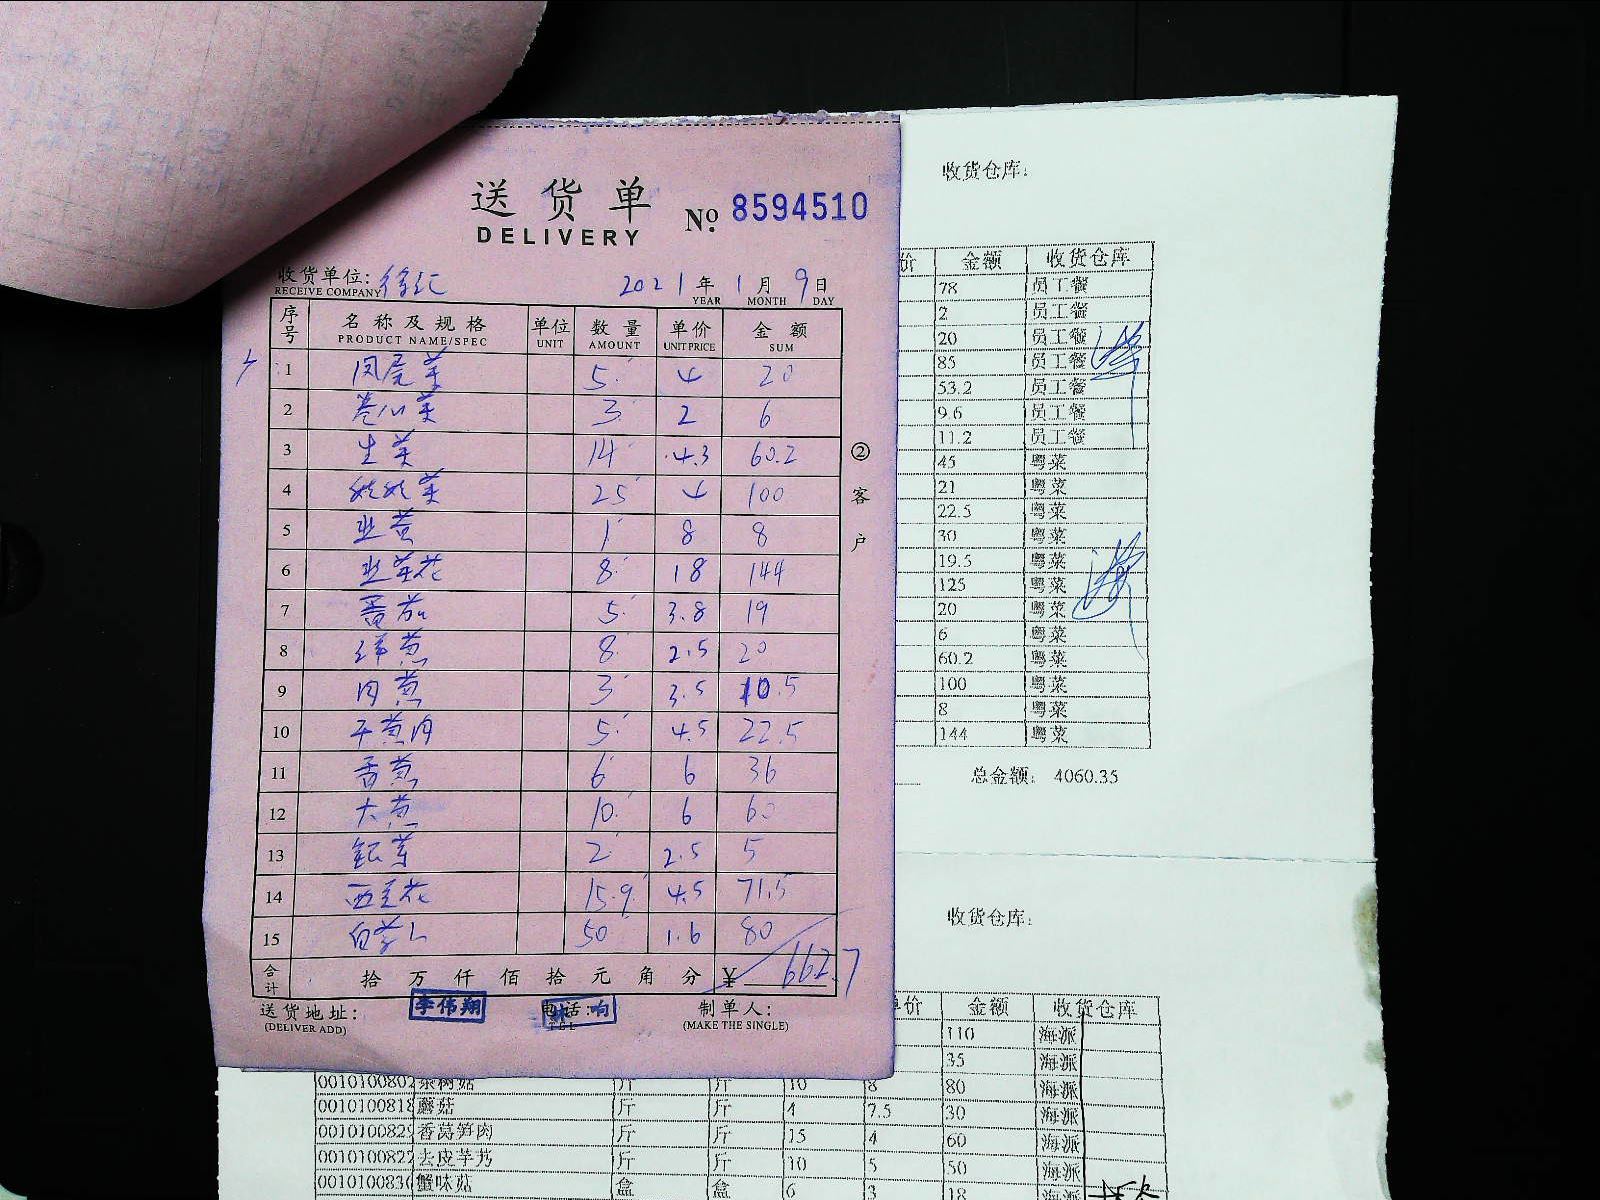 送货单
DELIVERY
№ 8594510
收货单位:徐汇 2021年1月9日
RECEIVE COMPANY YEAR MONTH DAY
序号 名称及规格 单位 数量 单价 金额
PRODUCT NAME/SPEC UNIT AMOUNT UNIT PRICE SUM
1 凤尾菜 5 4 20
2 卷心菜 3 2 6
3 生菜 14 4.3 60.2
4 娃娃菜 25 4 100
5 韭黄 1 8 8
6 韭菜花 8 18 144
7 番茄 5 3.8 19
8 洋葱 8 2.5 20
9 肉葱 3 3.5 10.5
10 干葱肉 5 4.5 22.5
11 香葱 6 6 36
12 大葱 10 6 60
13 银芽 2 2.5 5
14 西兰花 15.9 4.5 71.5
15 白萝卜 50 1.6 80
合计 拾万仟佰拾元角分 ¥ 662.7
送货地址: 李伟翔 电话: 制单人:
(DELIVER ADD) TEL (MAKE THE SINGLE)
②客户
收货仓库:
价 金额 收货仓库
78 员工餐
2 员工餐
20 员工餐
85 员工餐
53.2 员工餐
9.6 员工餐
11.2 员工餐
45 粤菜
21 粤菜
22.5 粤菜
30 粤菜
19.5 粤菜
125 粤菜
20 粤菜
6 粤菜
60.2 粤菜
100 粤菜
8 粤菜
144 粤菜
总金额: 4060.35
收货仓库:
单价 金额 收货仓库
110 海派
35 海派
0010100802 茶树菇 斤 斤 10 8 80 海派
0010100818 蘑菇 斤 斤 4 7.5 30 海派
001010082 香莴笋肉 斤 斤 15 4 60 海派
0010100822 去皮芋艿 斤 斤 10 5 50 海派
001010083 蟹味菇 盒 盒 6 3 18 海派